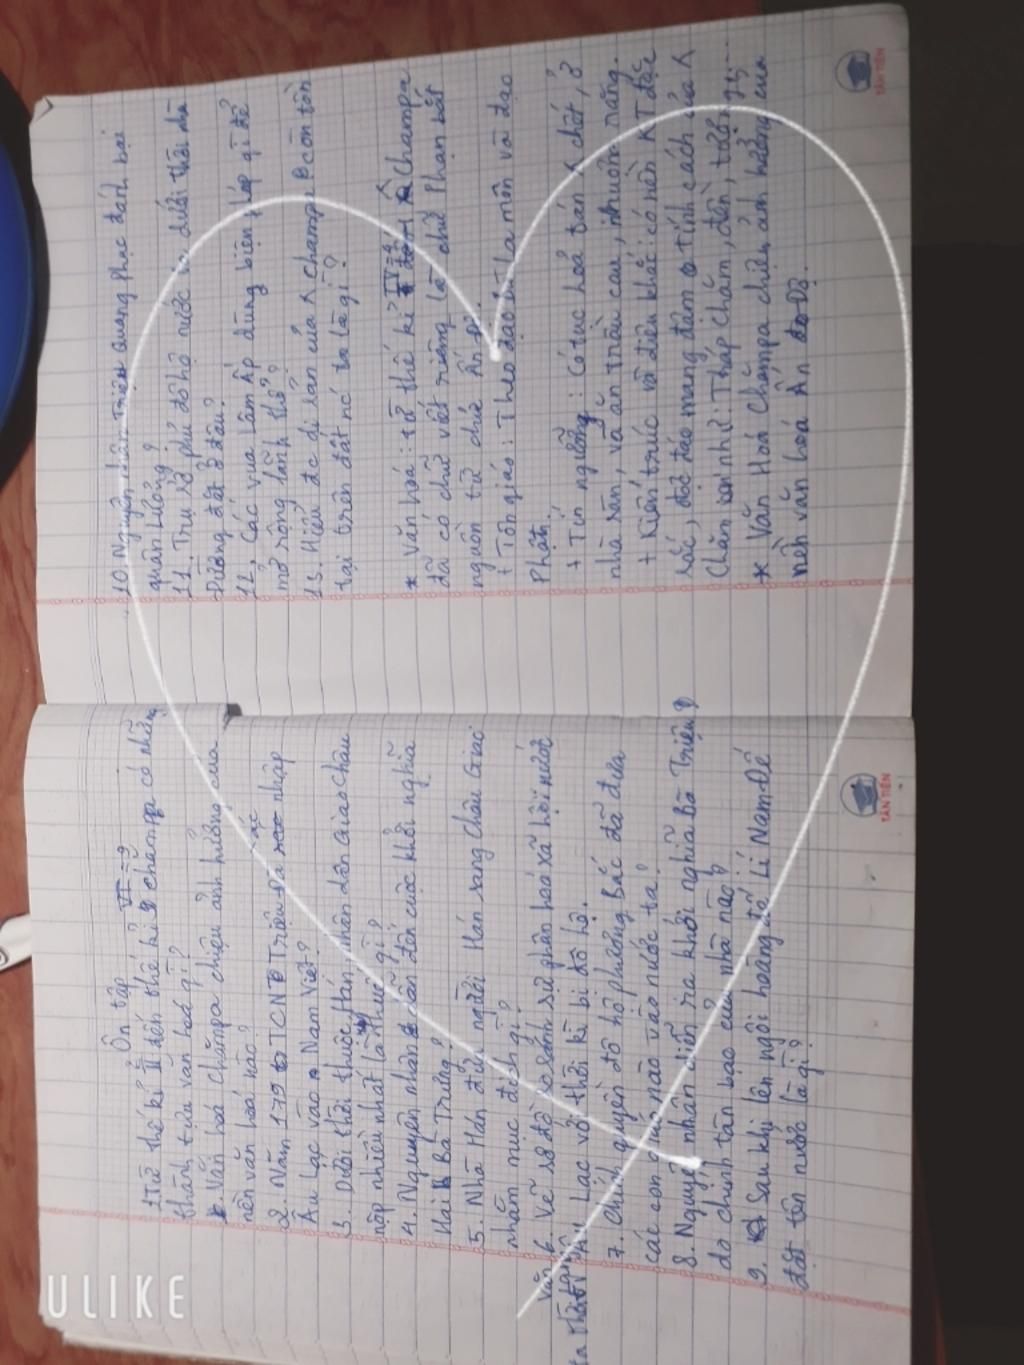 Ôn tập
1. Từ thế kỉ II đến thế kỉ VI => 9 chămpa có những
thành tựu văn hoá gì?
Văn hoá Chămpa chịu ảnh hưởng của
nền văn hoá nào?
2. Năm 179 TCN Triệu Đà sác nhập
Âu Lạc vào Nam Việt?
3. Dưới thời thuộc Hán, nhân dân Giao Châu
nộp nhiều nhất là thuế gì?
4. Nguyên nhân dẫn đến cuộc khởi nghĩa
Hai Bà Trưng?
5. Nhà Hán đưa người Hán sang Châu Giao
nhằm mục đích gì?
6. Vẽ sơ đồ so sánh sự phân hoá xã hội nước
Văn Lang Âu Lạc với thời kì bị đô hộ.
ta thời
7. Chính quyền đô hộ phương Bắc đã đưa
cái con nào vào nước ta?
8. Nguyên nhân diễn ra khởi nghĩa Bà Triệu
do chính tàn bạo của nhà nào?
9. Sau khi lên ngôi hoàng đế Lí Nam Đế
đặt tên nước là gì?
10. Nguyên nhân Triệu Quang Phục đánh bại
quân Lương?
11. Trụ sở phủ đô hộ nước ta dưới thời nhà
Đường đặt ở đâu?
12. Các vua Lâm Ấp dùng biện pháp gì để
mở rộng lãnh thổ?
13. Hiểu đc di sản của Champa còn tồn
tại trên đất nc ta là gì?
* Văn hoá: từ thế kỉ IV Champa
đã có chữ viết riêng là chữ Phạn bắt
nguồn từ chữ Ấn Độ.
+ Tôn giáo: Theo đạo Bà La môn và đạo
Phật.
+ Tín ngưỡng: Có tục hoả táng chết, ở
nhà sàn, và ăn trầu cau, nhuộm răng.
+ Kiến trúc và điêu khắc: có nền KT đặc
sắc, độc đáo mang đậm tính cách của
Chăm như: Tháp Chăm, đền, tượng...
* Văn Hoá Chămpa chịu ảnh hưởng của
nền văn hoá Ấn Độ.
TÂN TIẾN
TÂN TIẾN
ULIKE